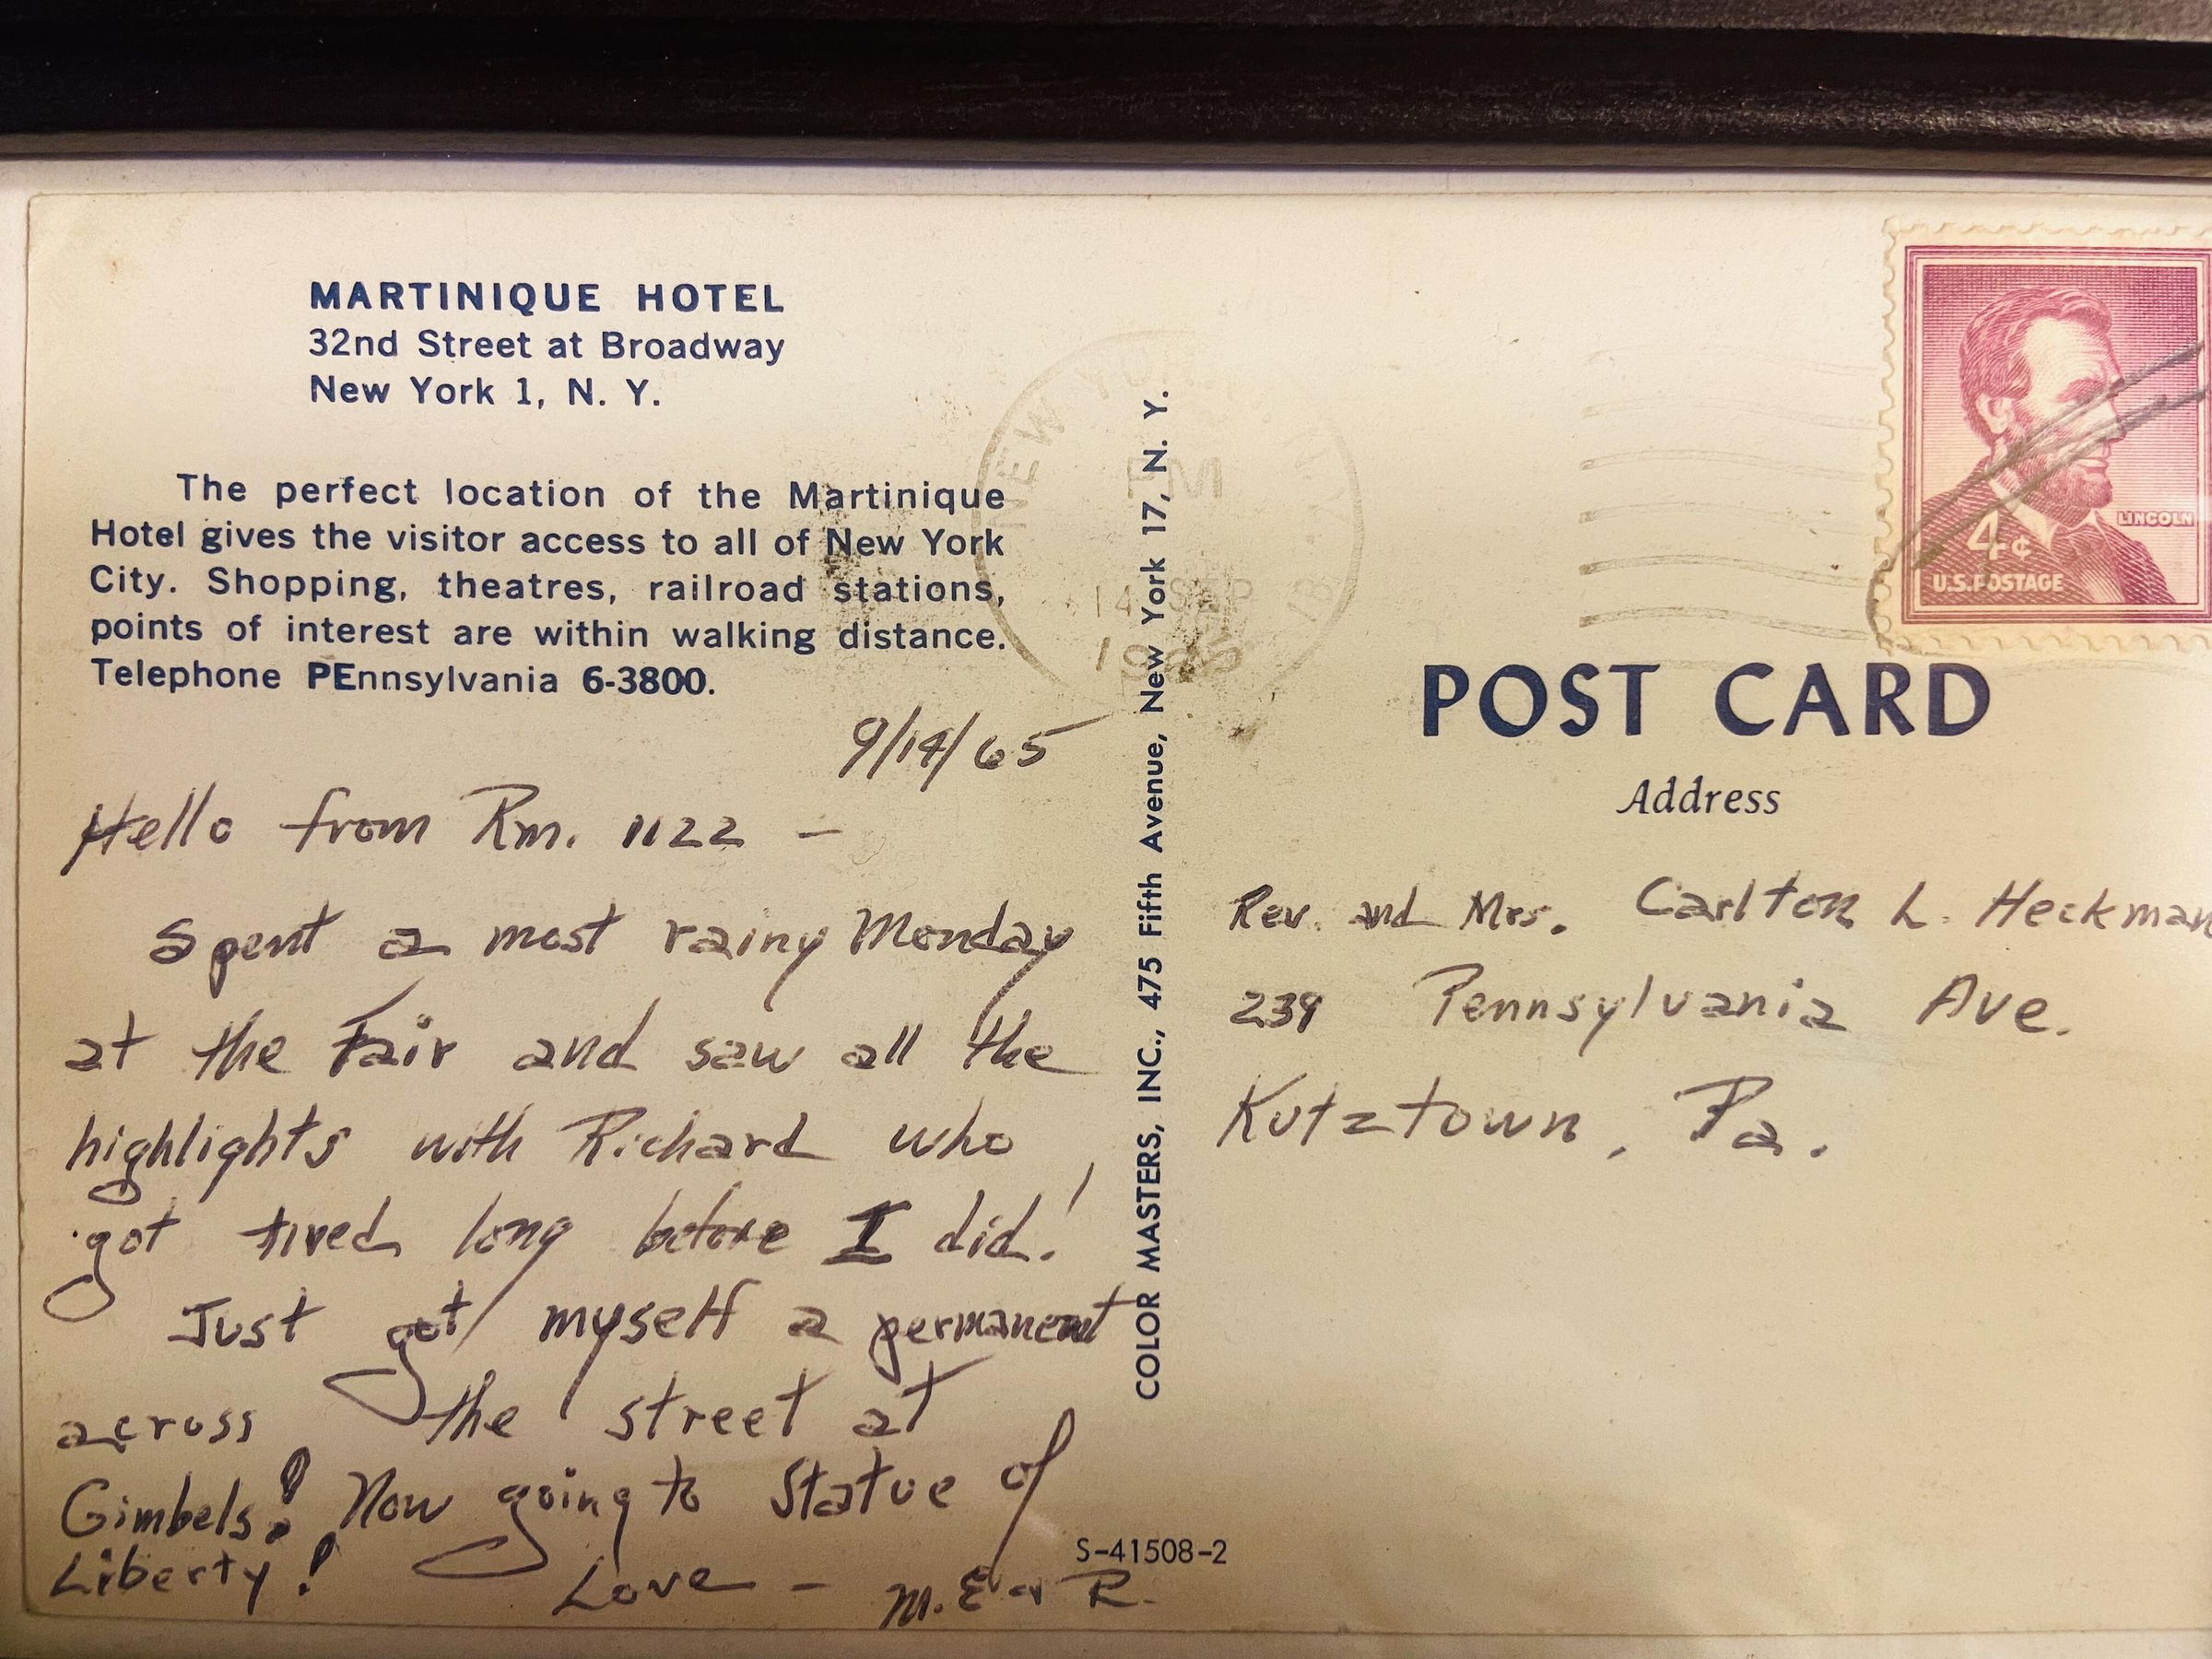 MARTINIQUE HOTEL
32nd Street at Broadway
New York 1, N. Y.
The perfect location of the Martinique
Hotel gives the visitor access to all of New York
City. Shopping, theatres, railroad stations,
points of interest are within walking distance.
Telephone PEnnsylvania 6-3800.
9/14/65
Hello from Rm. 1122 –
Spent a most rainy Monday
at the Fair and saw all the
highlights with Richard who
got tired long before I did!
Just got myself a permanent
across the street at
Gimbels! Now going to Statue of
Liberty! Love – M.E & R.
S-41508-2
COLOR MASTERS, INC., 475 Fifth Avenue, New York 17, N. Y.
NEW YORK
PM
14 SEP
1965
LINCOLN
4¢
U.S. POSTAGE
POST CARD
Address
Rev. and Mrs. Carlton L. Heckman
239 Pennsylvania Ave.
Kutztown, Pa.